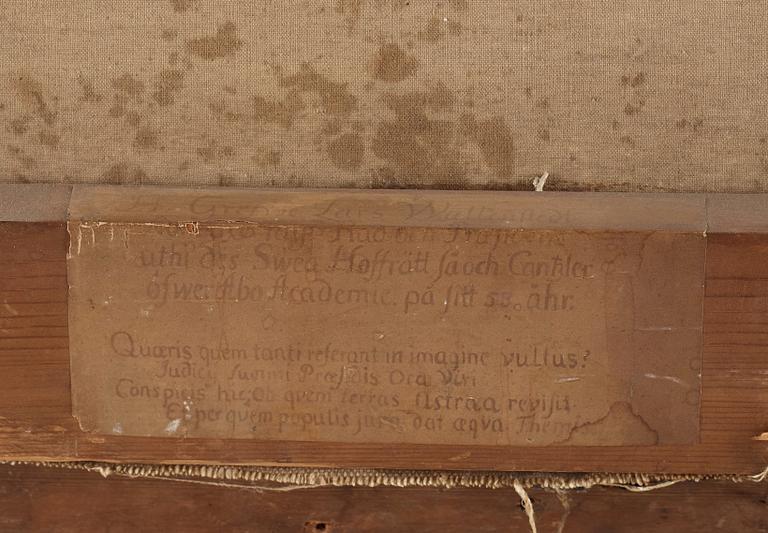 Lars Wallstedt
Råd och Præsident
uthi des Swea Hoffrätt så och Cantzler
öfwer Åbo Academie. på sitt 53. åhr.
Quæris quem tanti referant in imagine vultus?
Judicij summi Præsidis Ora Viri
Conspicis hic; Ob quem terras Astræa revisit.
Et per quem populis jura dat æqva Themis